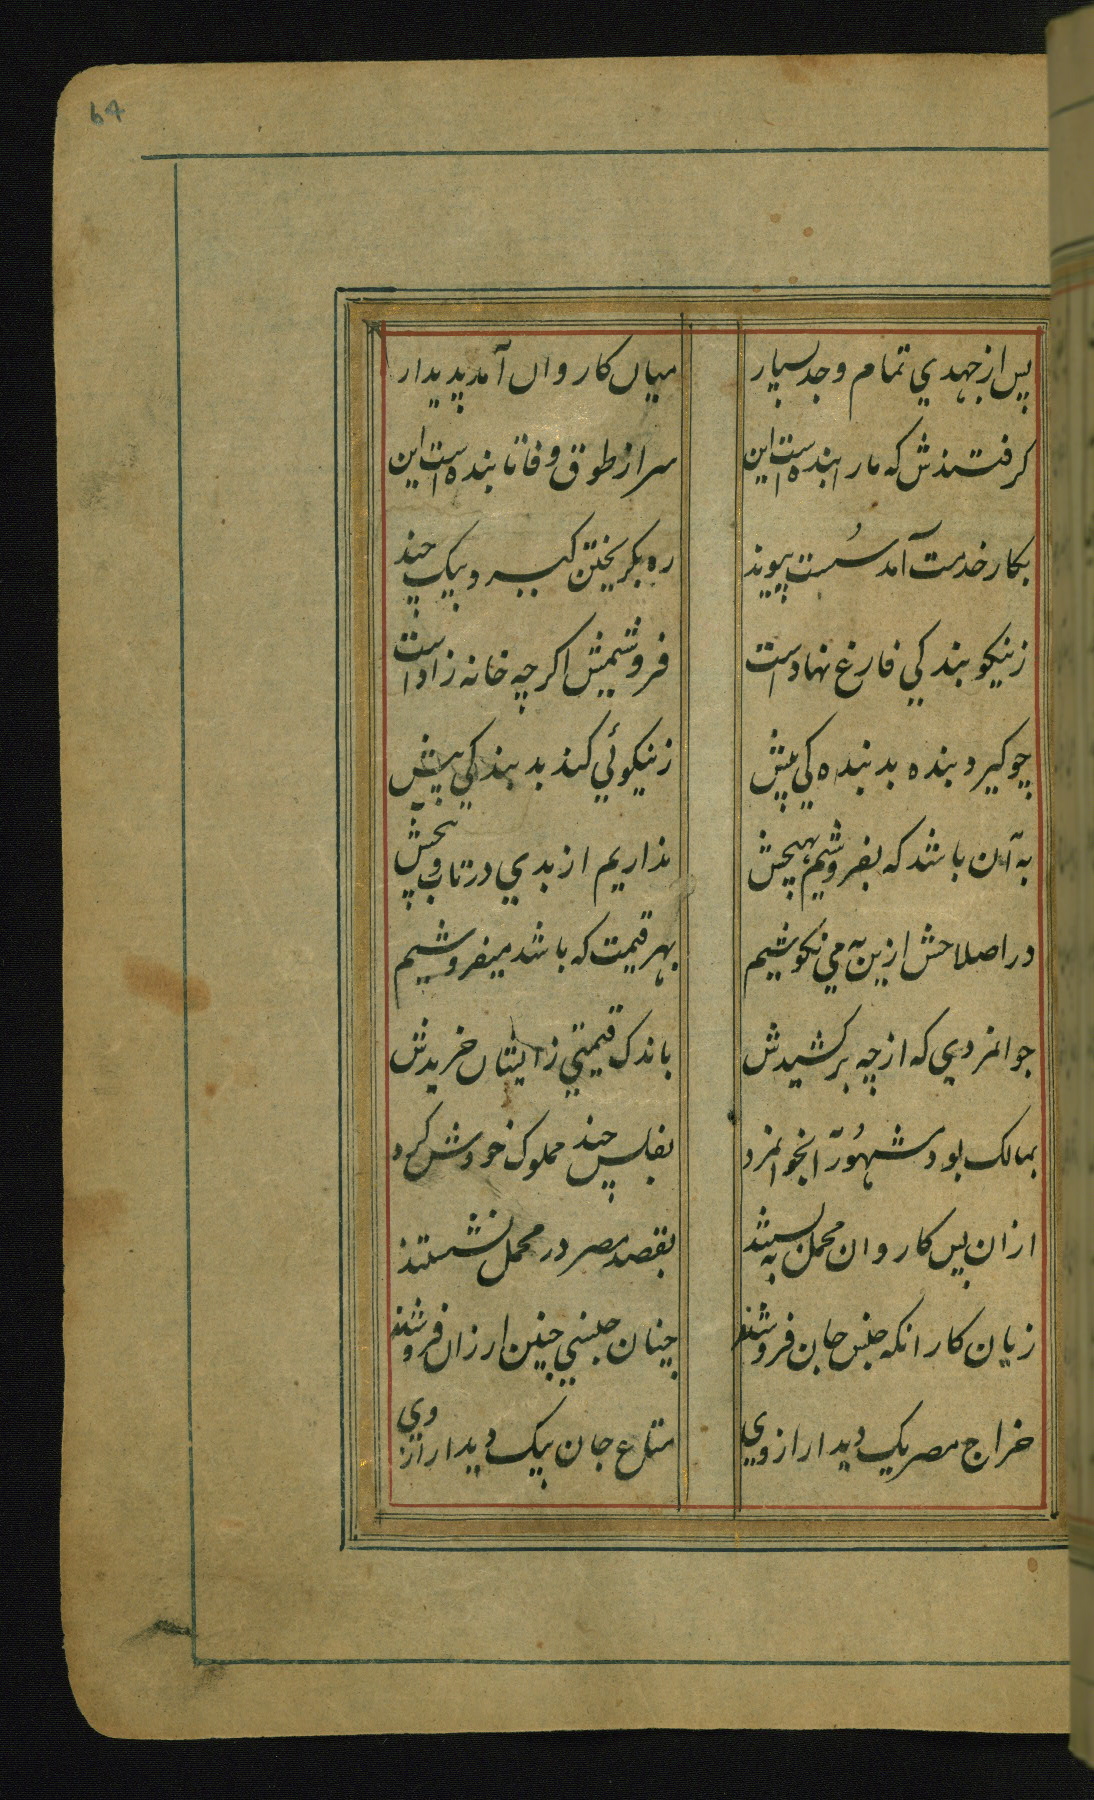 64
پس از جهدي تمام و جد بسیار میان کاروان آمد پدیدار
کرفتندش که ما را بنده است این سر از طوق وفا تابنده است این
بکار خدمت آمد سُست پیوند ره بکریختن کیرد بیک چند
ز نیکو بندکي فارغ نهادست فروشیمش اکرچه خانه زادست
چو کیرد بنده بد بنده کي پیش ز نیکوئي کند بد بندکي بیش
به آن باشد که بفروشیم بهیچش نداریم از بدي در تاب و پیچش
در اصلاحش ازین پس مي نکوشیم بهر قیمت که باشد میفروشیم
جوانمردي که از چه برکشیدش باندک قیمتي زایشان خریدش
بمالک بود مشهُور آنجوانمرد بفلسي چند مملوک خودش کرد
از ان پس کاروان محمل به بستند بقصد مصر در محمل نشستند
زیان کار انکه جنس جان فروشند چنان جنسي چنین ارزان فروشند
خراج مصر یک دیدار از وي متاع جان بیک دیدار از وي